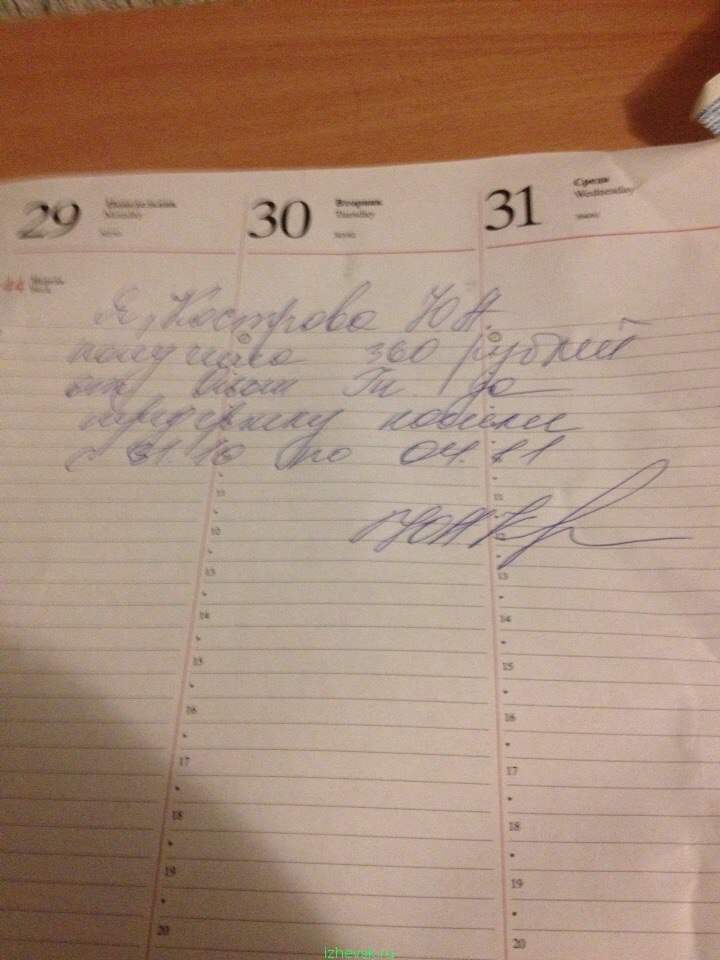 29
Monday
30
Вторник
Tuesday
31
Среда
Wednesday
Я, Кострова Ю.А.
получила 360 рублей
от за
передержку кобеля
с 31.10 по 04.11
11
12
13
14
15
16
17
18
19
20
11
13
14
15
16
17
18
19
20
izhevsk.ru